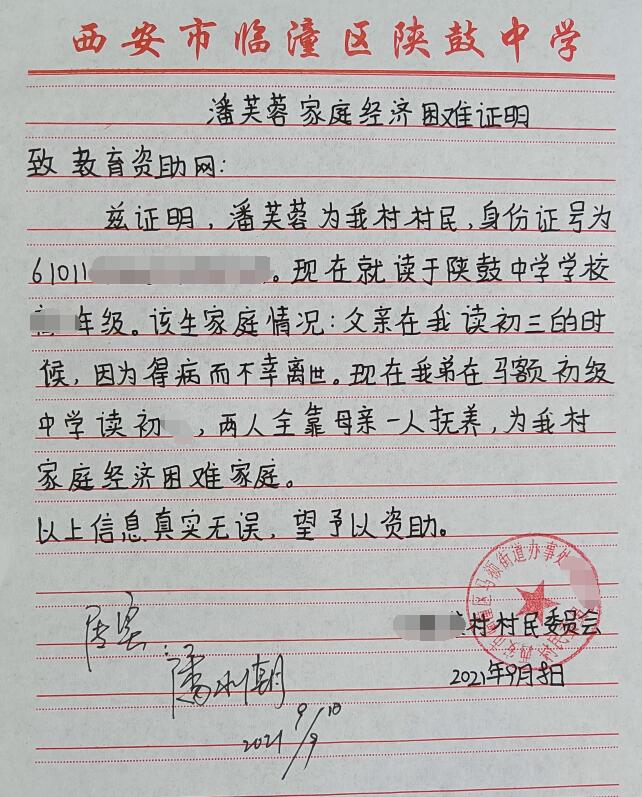 西安市临潼区陕鼓中学
潘芙蓉家庭经济困难证明
致教育资助网：
兹证明，潘芙蓉为我村村民，身份证号为
61011 。现在就读于陕鼓中学学校
年级。该生家庭情况：父亲在我读初三的时
候，因为得病而不幸离世。现在我弟在马额初级
中学读初 ，两人全靠母亲一人抚养，为我村
家庭经济困难家庭。
以上信息真实无误，望予以资助。
马额街道办事处
村村民委员会
2021年9月 日
潘
2021 9/10